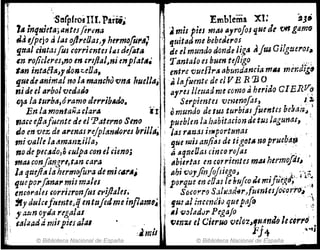 Satyros III. Parte,
la inquieta; antes serena
da espejo à las ojeras, y hermosura;
qual cintas sus corrientes las desata
en rosicleres, no en cristal, ni en plata;
tan intacta, y doncella,
que de animal no la manchò vna huella,
ni de el arbol vedado
oja la turba, ò ramo derribado.
En la montaña clara
nace esta fuente de el Paterno Seno
do en vez de arenas resplandores brilla,
mi valle la amanzilla,
no de pecado, ò culpa con el cieno;
mas con sangre, tan cara
la questa la hermosura de mi cara;
que por sanar mis males
en corales corrieron sus cristales.
Ay dulce fuente, q̃ en tu sed me inflamo,
y aun oy da regalas
salaad à mis pies alas
à mis
Emblema XI. 230
à mis pies mas ayrosos que de vn gamo
quitad me bebederos
de el mundo donde liga à sus Gilgueros,
Tantalo es buen testigo
entre vuestra abundancia mas mendigo
à la fuente de el VERBO
ayres lleuadme como à herido CIERVO
Serpientes venenosas, 12
ò mundo de tus turbias fuentes beban,
pueblen la habitacion de tus lagunas,
las ranas importunas
que mis ansias de ti gota no prueban
à aquellas cinco rosas
abiertas en corrientes mas hermosas,
ahi voy sin sosiego,
porque en ellas le busco de mi fuego,
Socorro Saluador, fuentes socorro,
que al incendio que paso
al volador Pegaso
venze el Cieruo veloz, quando le corro
Ff4
Biblioteca Nacional de España
Biblioteca Nacional de España